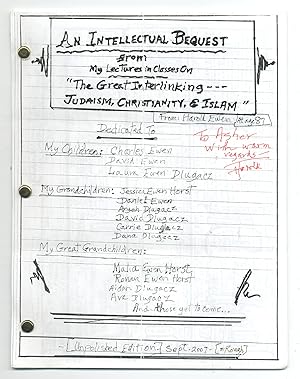 AN INTELLECTUAL BEQUEST
From
My Lectures in Classes On
"The Great Interlinking ---
JUDAISM, CHRISTIANITY, & ISLAM"
From Harold Ewen, at age 87
To Asher
With warm
regards —
Harold
Dedicated To
My Children: Charles Ewen
David Ewen
Laura Ewen Dlugacz
My Grandchildren: Jessica Ewen Horst
Daniel Ewen
Aryeh Dlugacz
David Dlugacz
Carrie Dlugacz
Dana Dlugacz
My Great Grandchildren:
Malia Ewen Horst
Ronan Ewen Horst
Aidan Dlugacz
Ava Dlugacz
And those yet to come...
Unpolished Edition - Sept-2007 - [in Rough]